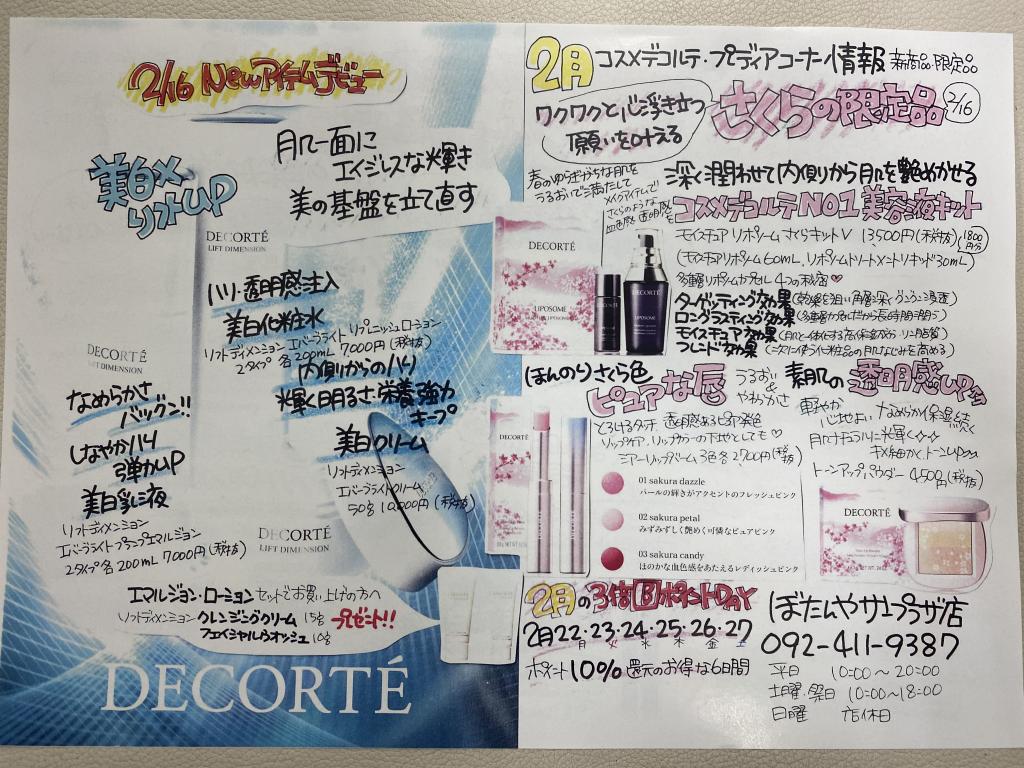 2/16 Newアイテムデビュー
美白×
リフトUP
肌一面に
エイジレスな輝き
美の基盤を立て直す
DECORTÉ
LIFT DIMENSION
ハリ・透明感注入
美白化粧水
リフトディメンション エバーブライト リプレニッシュローション
2タイプ 各200mL 7000円(税抜)
DECORTÉ
LIFT DIMENSION
なめらかさ
バツグン!!
しなやかハリ
弾力UP
美白乳液
リフトディメンション
エバーブライトプランプエマルジョン
2タイプ 各200mL 7000円(税抜)
内側からのハリ
輝く明るさ・栄養強力
キープ
美白クリーム
リフトディメンション
エバーブライトクリーム
50g 10,000円(税抜)
DECORTÉ
LIFT DIMENSION
エマルジョン・ローションセットでお買い上げの方へ
リフトディメンション クレンジングクリーム 15g プレゼント!!
フェイシャルウォッシュ 10g
DECORTÉ
2月 コスメデコルテ・プディアコーナー情報 新商品・限定品
ワクワクと心浮き立つ
願いを叶える
さくらの限定品 2/16
春のゆらぎがちな肌を
うるおいで満たして
メイクアイテムで
さくらのような
血色感 透明感を
深く潤わせて内側から肌を艶めかせる
コスメデコルテNO1美容液キット
モイスチュア リポソーム さくらキットV 13,500円(税抜) 1800円分
(モイスチュアリポソーム 60mL, リポソームトリートメントリキッド30mL)
多重層リポソームカプセル 4つの秘密♡
ターゲッティング効果(乾燥を狙い角層深くグングン浸透)
ロングラスティング効果(多重層カプセルだから長時間潤う)
モイスチュア効果(肌と一体化する高保湿成分 リン脂質)
ブレンド効果(次に使う化粧品の肌なじみを高める)
DECORTÉ
LIPOSOME
DECORTÉ
LIPOSOME
ほんのりさくら色
ピュアな唇
うるおい
&
やわらかさ
とろけるタッチ 透明感あるピュア発色
リップケア、リップカラーの下地としても♡
シアーリップバーム 3色 各2,700円(税抜)
DECORTÉ
01 sakura dazzle
パールの輝きがアクセントのフレッシュピンク
02 sakura petal
みずみずしく艶めく可憐なピュアピンク
03 sakura candy
ほのかな血色感をあたえるレディッシュピンク
素肌の透明感UP
軽やか
心地よい なめらか保湿続く
肌ナチュラルに輝く☆☆
キメ細かくトーンUP
トーンアップパウダー 4,500円(税抜)
DECORTÉ
2月の3倍BポイントDAY
2月22・23・24・25・26・27
月 火 水 木 金 土
ポイント10%還元のお得な6日間
ぼたんやサンプラザ店
092-411-9387
平日 10:00〜20:00
土曜・祭日 10:00〜18:00
日曜 店休日